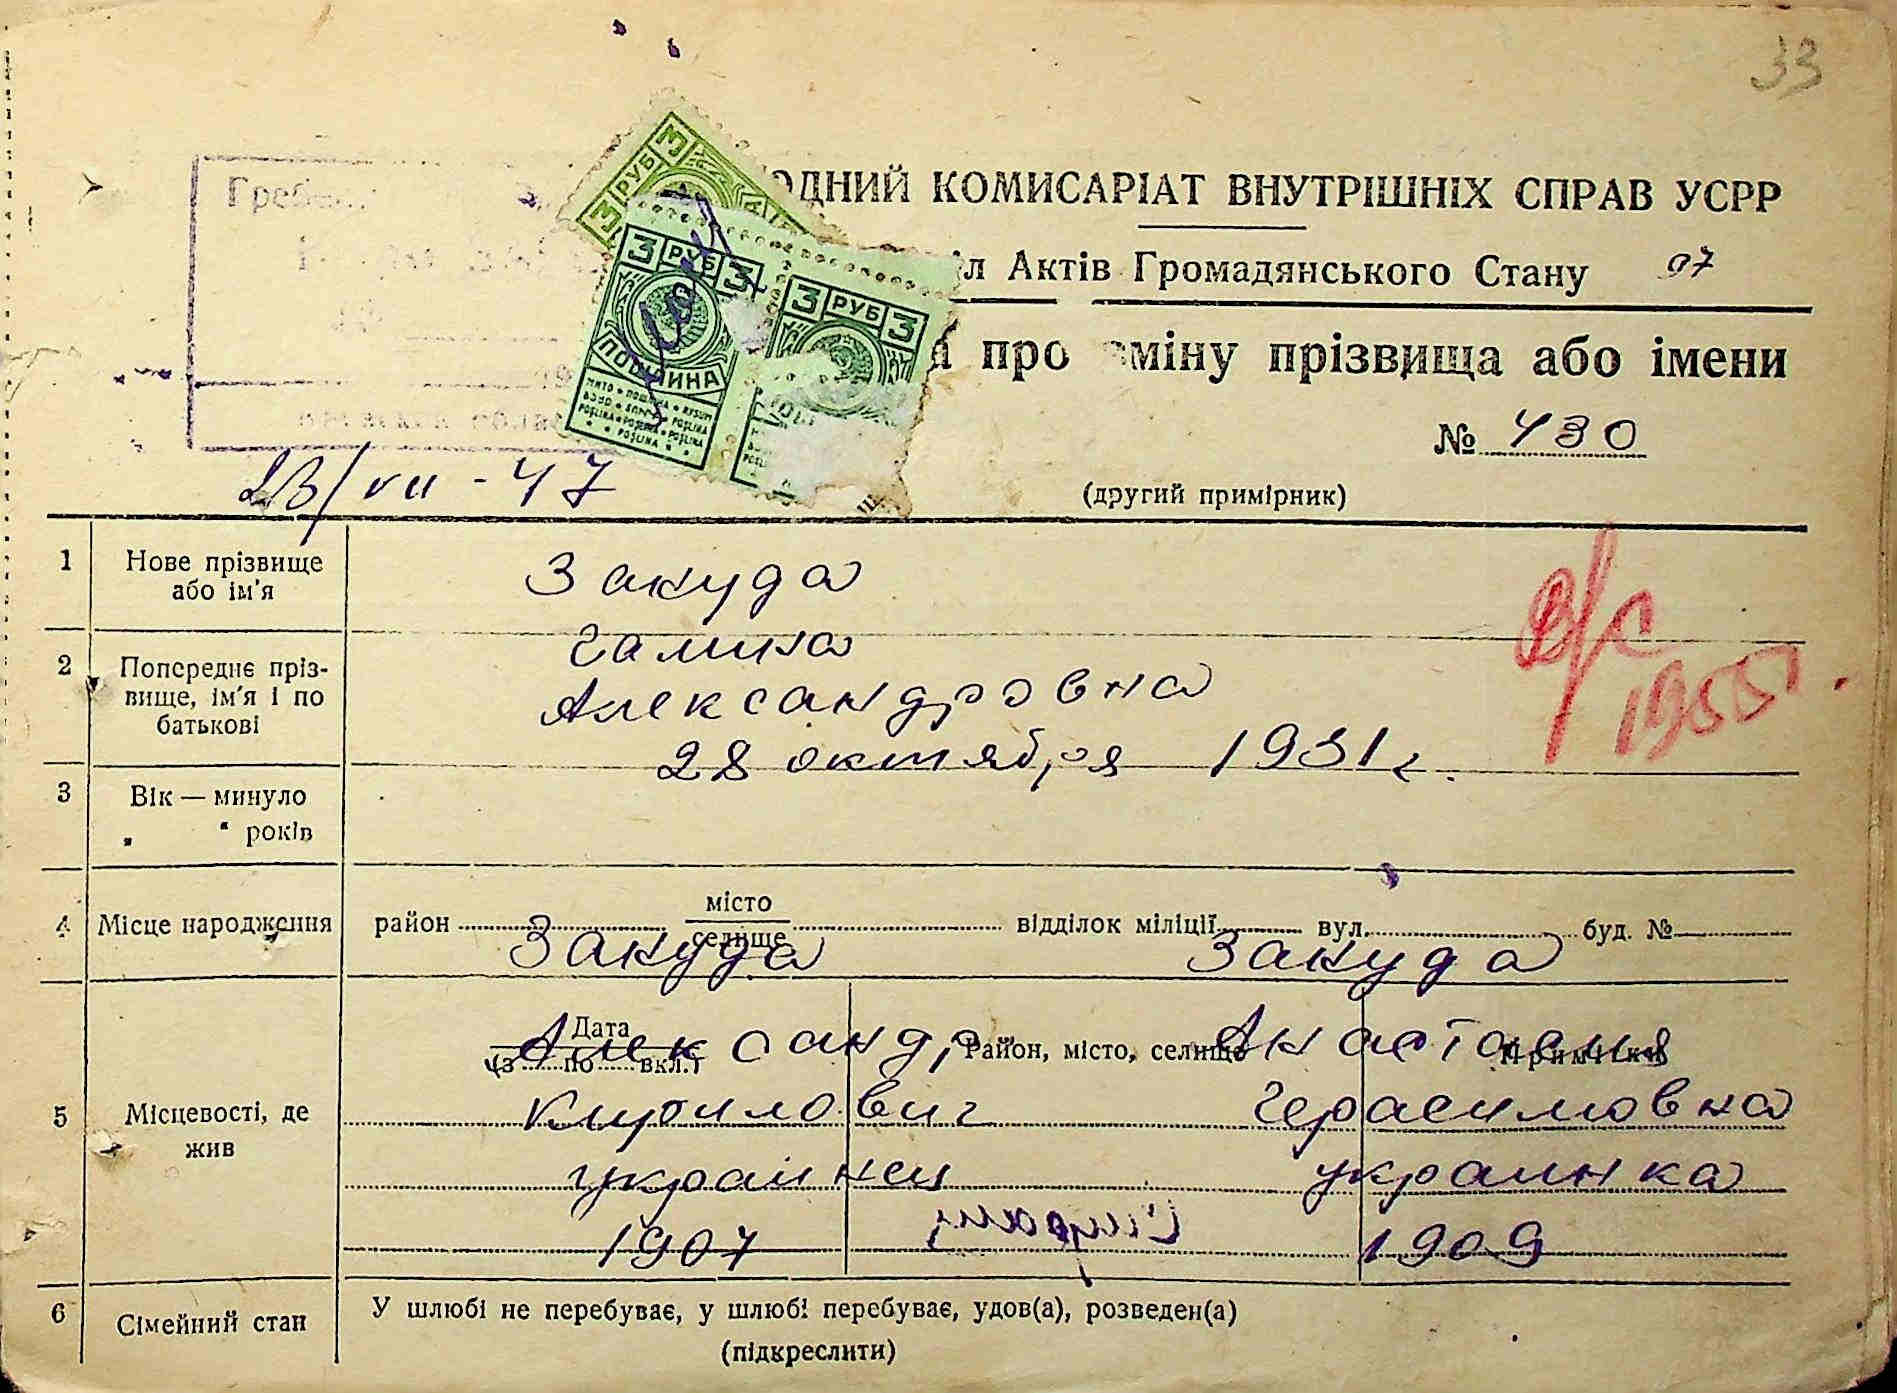 33
Греб
ОДНИЙ КОМИСАРІАТ ВНУТРІШНІХ СПРАВ УСРР
іл Актів Громадянського Стану 97
а про зміну прізвища або імени
№ 430
(другий примірник)
3 РУБ 3
3 РУБ 3
3 РУБ 3
ПОШЛИНА
23/VII - 47
1 Нове прізвище або ім'я
Закуда
2 Попереднє прізвище, ім'я і по батькові
Галина
Александровна
28 октября 1931 г.
В/с 1955
3 Вік — минуло
„ “ років
4 Місце народження район місто селище відділок міліції вул. буд. №
Закуда Закуда
Дата
(з по вкл.) Район, місто, селище Примітки
Александр Анастасия
5 Місцевості, де жив
Кирилович Герасимовна
украинец украинка
1907 1909
6 Сімейний стан У шлюбі не перебуває, у шлюбі перебуває, удов(а), розведен(а)
(підкреслити)